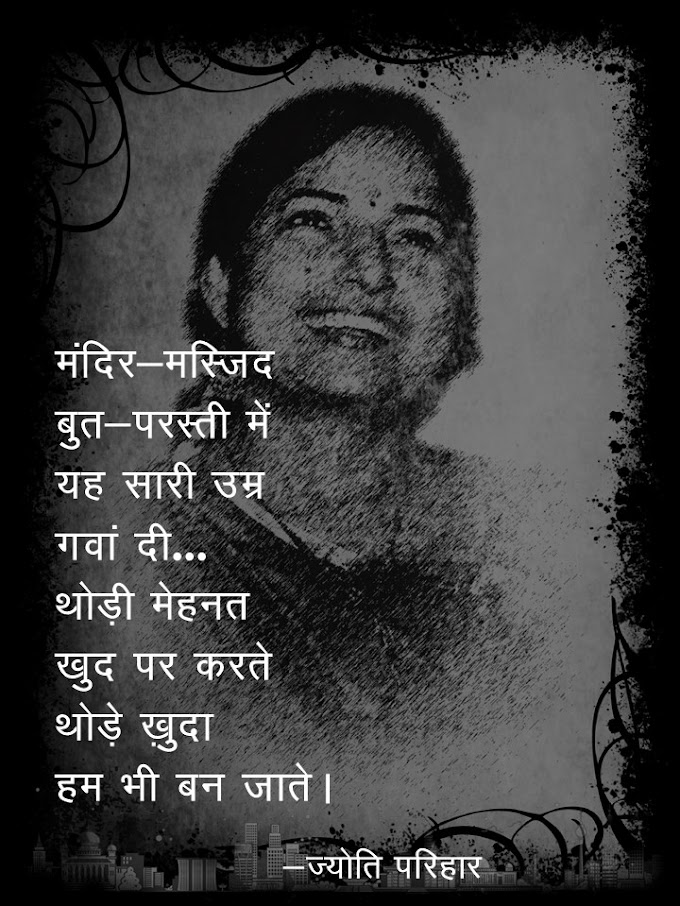 मंदिर–मस्जिद
बुत–परस्ती में
यह सारी उम्र
गवां दी...
थोड़ी मेहनत
खुद पर करते
थोड़े ख़ुदा
हम भी बन जाते।
–ज्योति परिहार